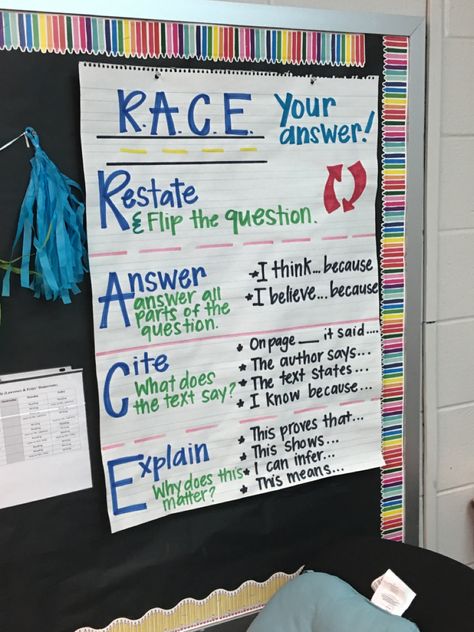 R.A.C.E. Your answer!
Restate
& Flip the question.
Answer
answer all
parts of the
question.
* I think... because
* I believe... because
Cite
What does
the text say?
* On page __ it said....
* The author says...
* The text states...
* I know because...
Explain
Why does this
matter?
* This proves that...
* This shows...
* I can infer...
* This means...